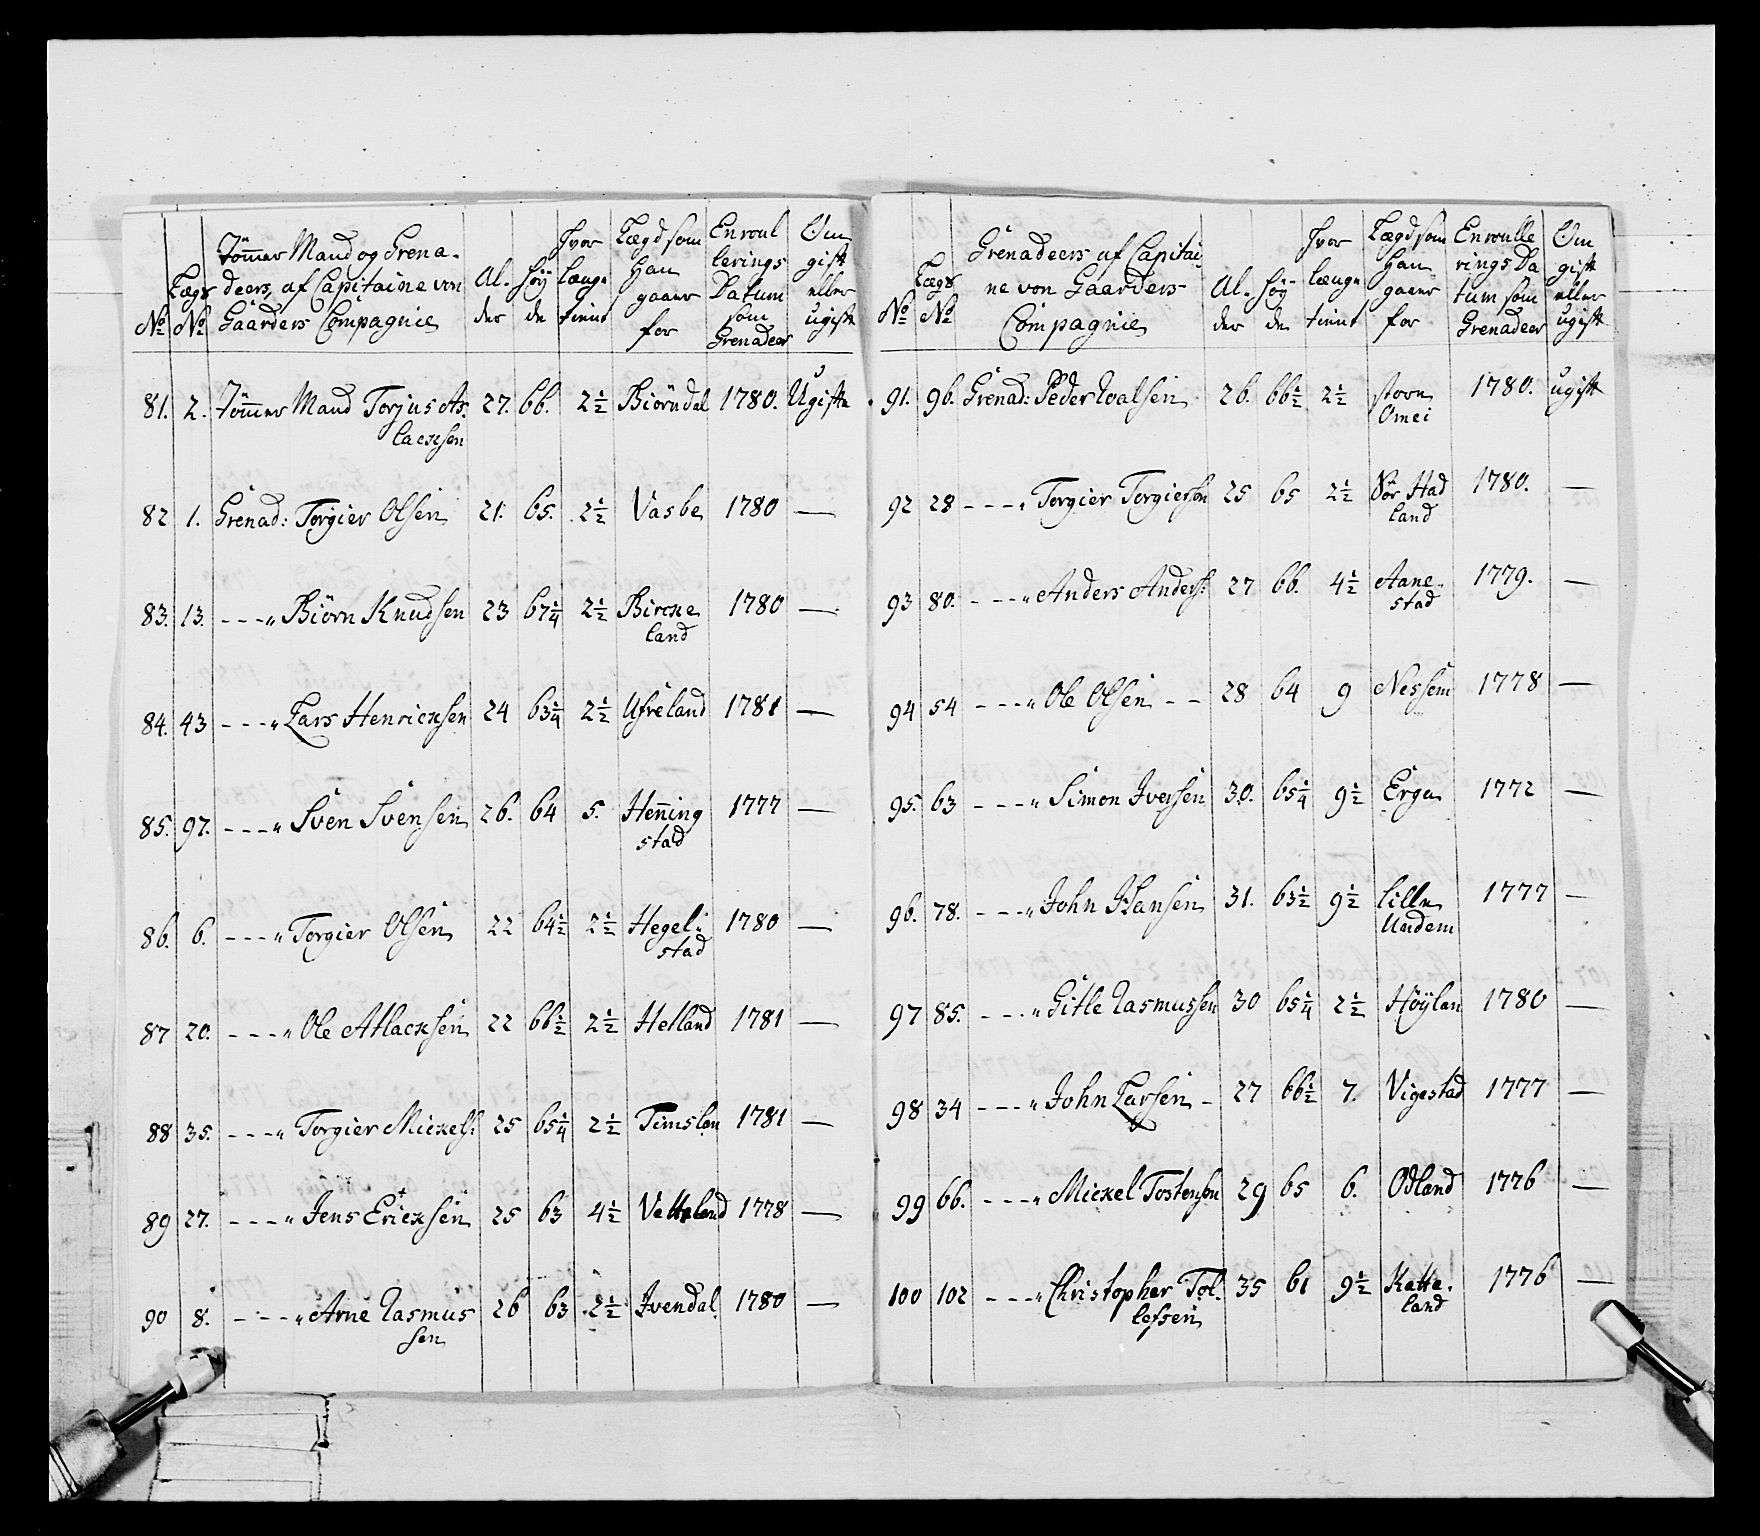 No
Lægs No
Tömmer Mand og Grena-
deers, af Capitaine von
Gaarders Compagnie
Al-
der
Höy
de
Hvor
længe
tient
Lægd som
Han
gaaer
for
Enroul
lerings
Datum
som
Grenadeer
Om
gift
eller
ugift
81. 2. Tömmer Mand Torjus As- 27. 66. 2½ Biörndal 1780. Ugift
lacksen
82 1. Grenad: Torgier Olsen 21. 65. 2½ Vasbe 1780 —
83. 13. - - - „ Biörn Knudsen 23 67¼ 2½ Bircke 1780 —
land
84. 43 - - - „ Lars Henricksen 24 63¼ 2½ Ufreland 1781 —
85. 97. - - - „ Sven Svensen 26. 64 5. Hen̄ing 1777 —
stad
86. 6. - - - „ Torgier Olsen 22 64½ 2½ Hegel: 1780 —
stad
87 20. - - - „ Ole Atlacksen 22 66½ 2½ Hetland 1781 —
88 35. - - - „ Torgier Mickels: 25 65¼ 2½ Timslan 1781 —
89 27. - - - „ Jens Ericksen 25 63 4½ Vetteland 1778 —
90 8. - - - „ Arne Rasmus 26 63 2½ Ivendal 1780 —
sen
No
Lægs No
Grenadeers af Capitai-
ne von Gaarders
Compagnie
Al-
der
Höy
de
Hvor
længe
tient
Lægd som
Han
gaaer
for
Enroulle
rings Da
tum som
Grenadeer
Om
gift
eller
ugift
91. 96. Grenad: Peder Roalsen 26. 66½ 2½ store 1780. ugift
Omei
92 28 - - - „ Torgier Torgiersen 25 65 2½ Nör Had 1780. —
land
93 80. - - - „ Anders Anders: 27 66. 4½ Aane- 1779. —
stad
94 54 - - - „ Ole Olsen - - 28 64 9 Nessem 1778 —
95. 63 - - - „ Simon Iversen 30. 65¼ 9½ Erga 1772 —
96. 78. - - - „ John Hansen 31. 63½ 9½ lille 1777 —
Undem
97 85. - - - „ Gitle Rasmussen 30 65¼ 2½ Höÿlan 1780 —
98 34 - - - „ John Larsen - 27 66½ 7. Vigestad 1777 —
99 66. - - - „ Mickel Tostensen 29 65 6. Odland 1776 —
100 102 - - - „ Christopher Tol- 35 61 9½ Katte- 1776 —
lefsen land